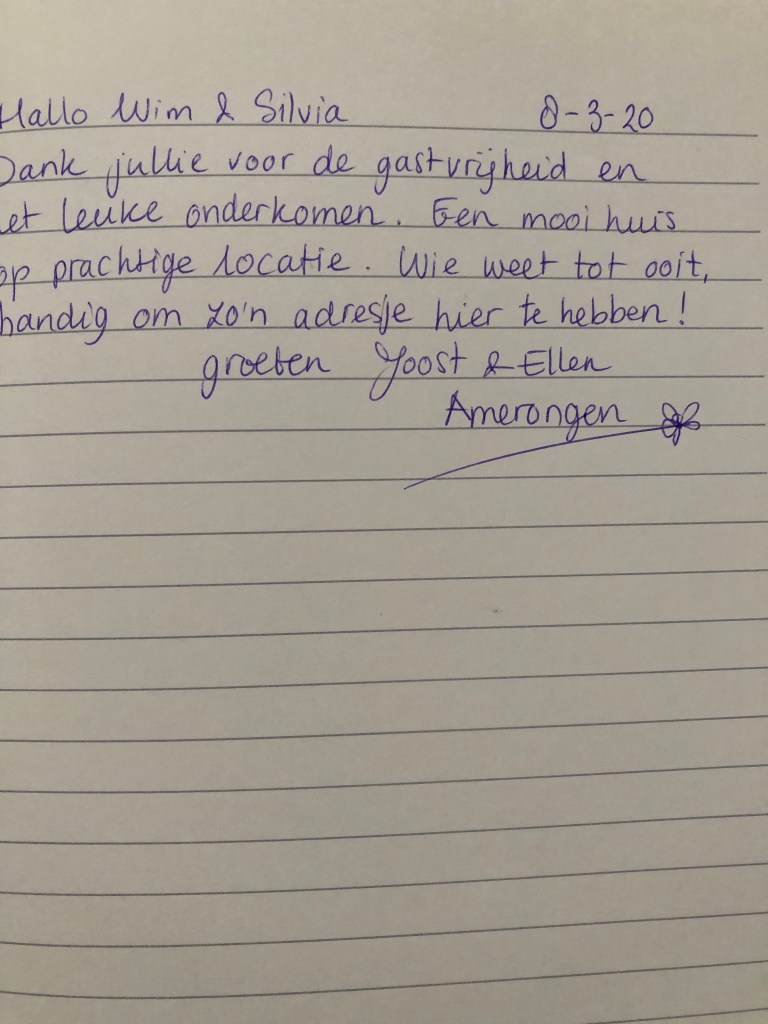 Hallo Wim & Silvia 8-3-20
Dank jullie voor de gastvrijheid en
et leuke onderkomen. Een mooi huis
op prachtige locatie. Wie weet tot ooit,
handig om zo'n adresje hier te hebben!
groeten Joost & Ellen
Amerongen